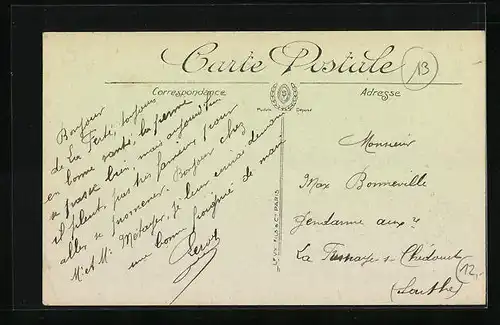 Carte Postale
13
Correspondance
Modèle Déposé
Adresse
Bonjour
de La Ferté, toujours
en bonne santé, la perme
se passe bien, mais aujourd'hui
il pleut, pas très fameux pour
aller se promener. Bonjour chez
Mr et Me Métayer, je leur envoi demain
une bonne poignée de main
Leroy
Monsieur
Max Bonneville
Gendarme aux
La Fresnaye s Chédouet
(Sarthe)
12,-